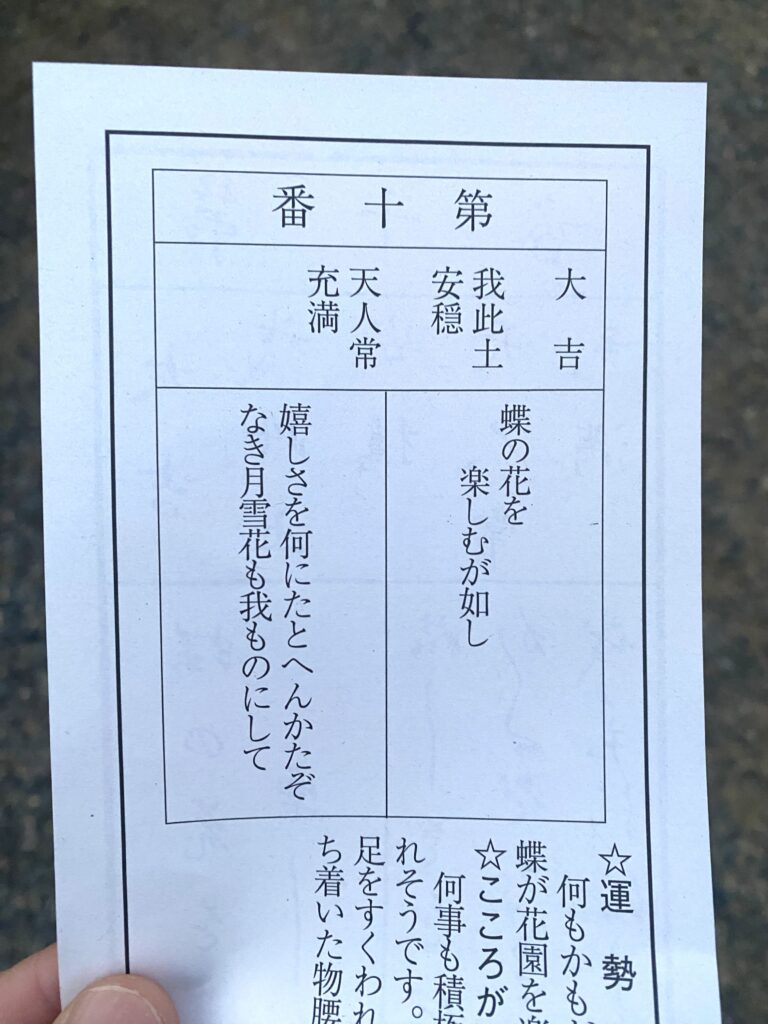 第十番
大吉
我此土
安穏
天人常
充満
蝶の花を
楽しむが如し
嬉しさを何にたとへんかたぞ
なき月雪花も我ものにして
☆運勢
何もかも
蝶が花園を
☆こころが
何事も積極
れそうです。
足をすくわれ
ち着いた物腰